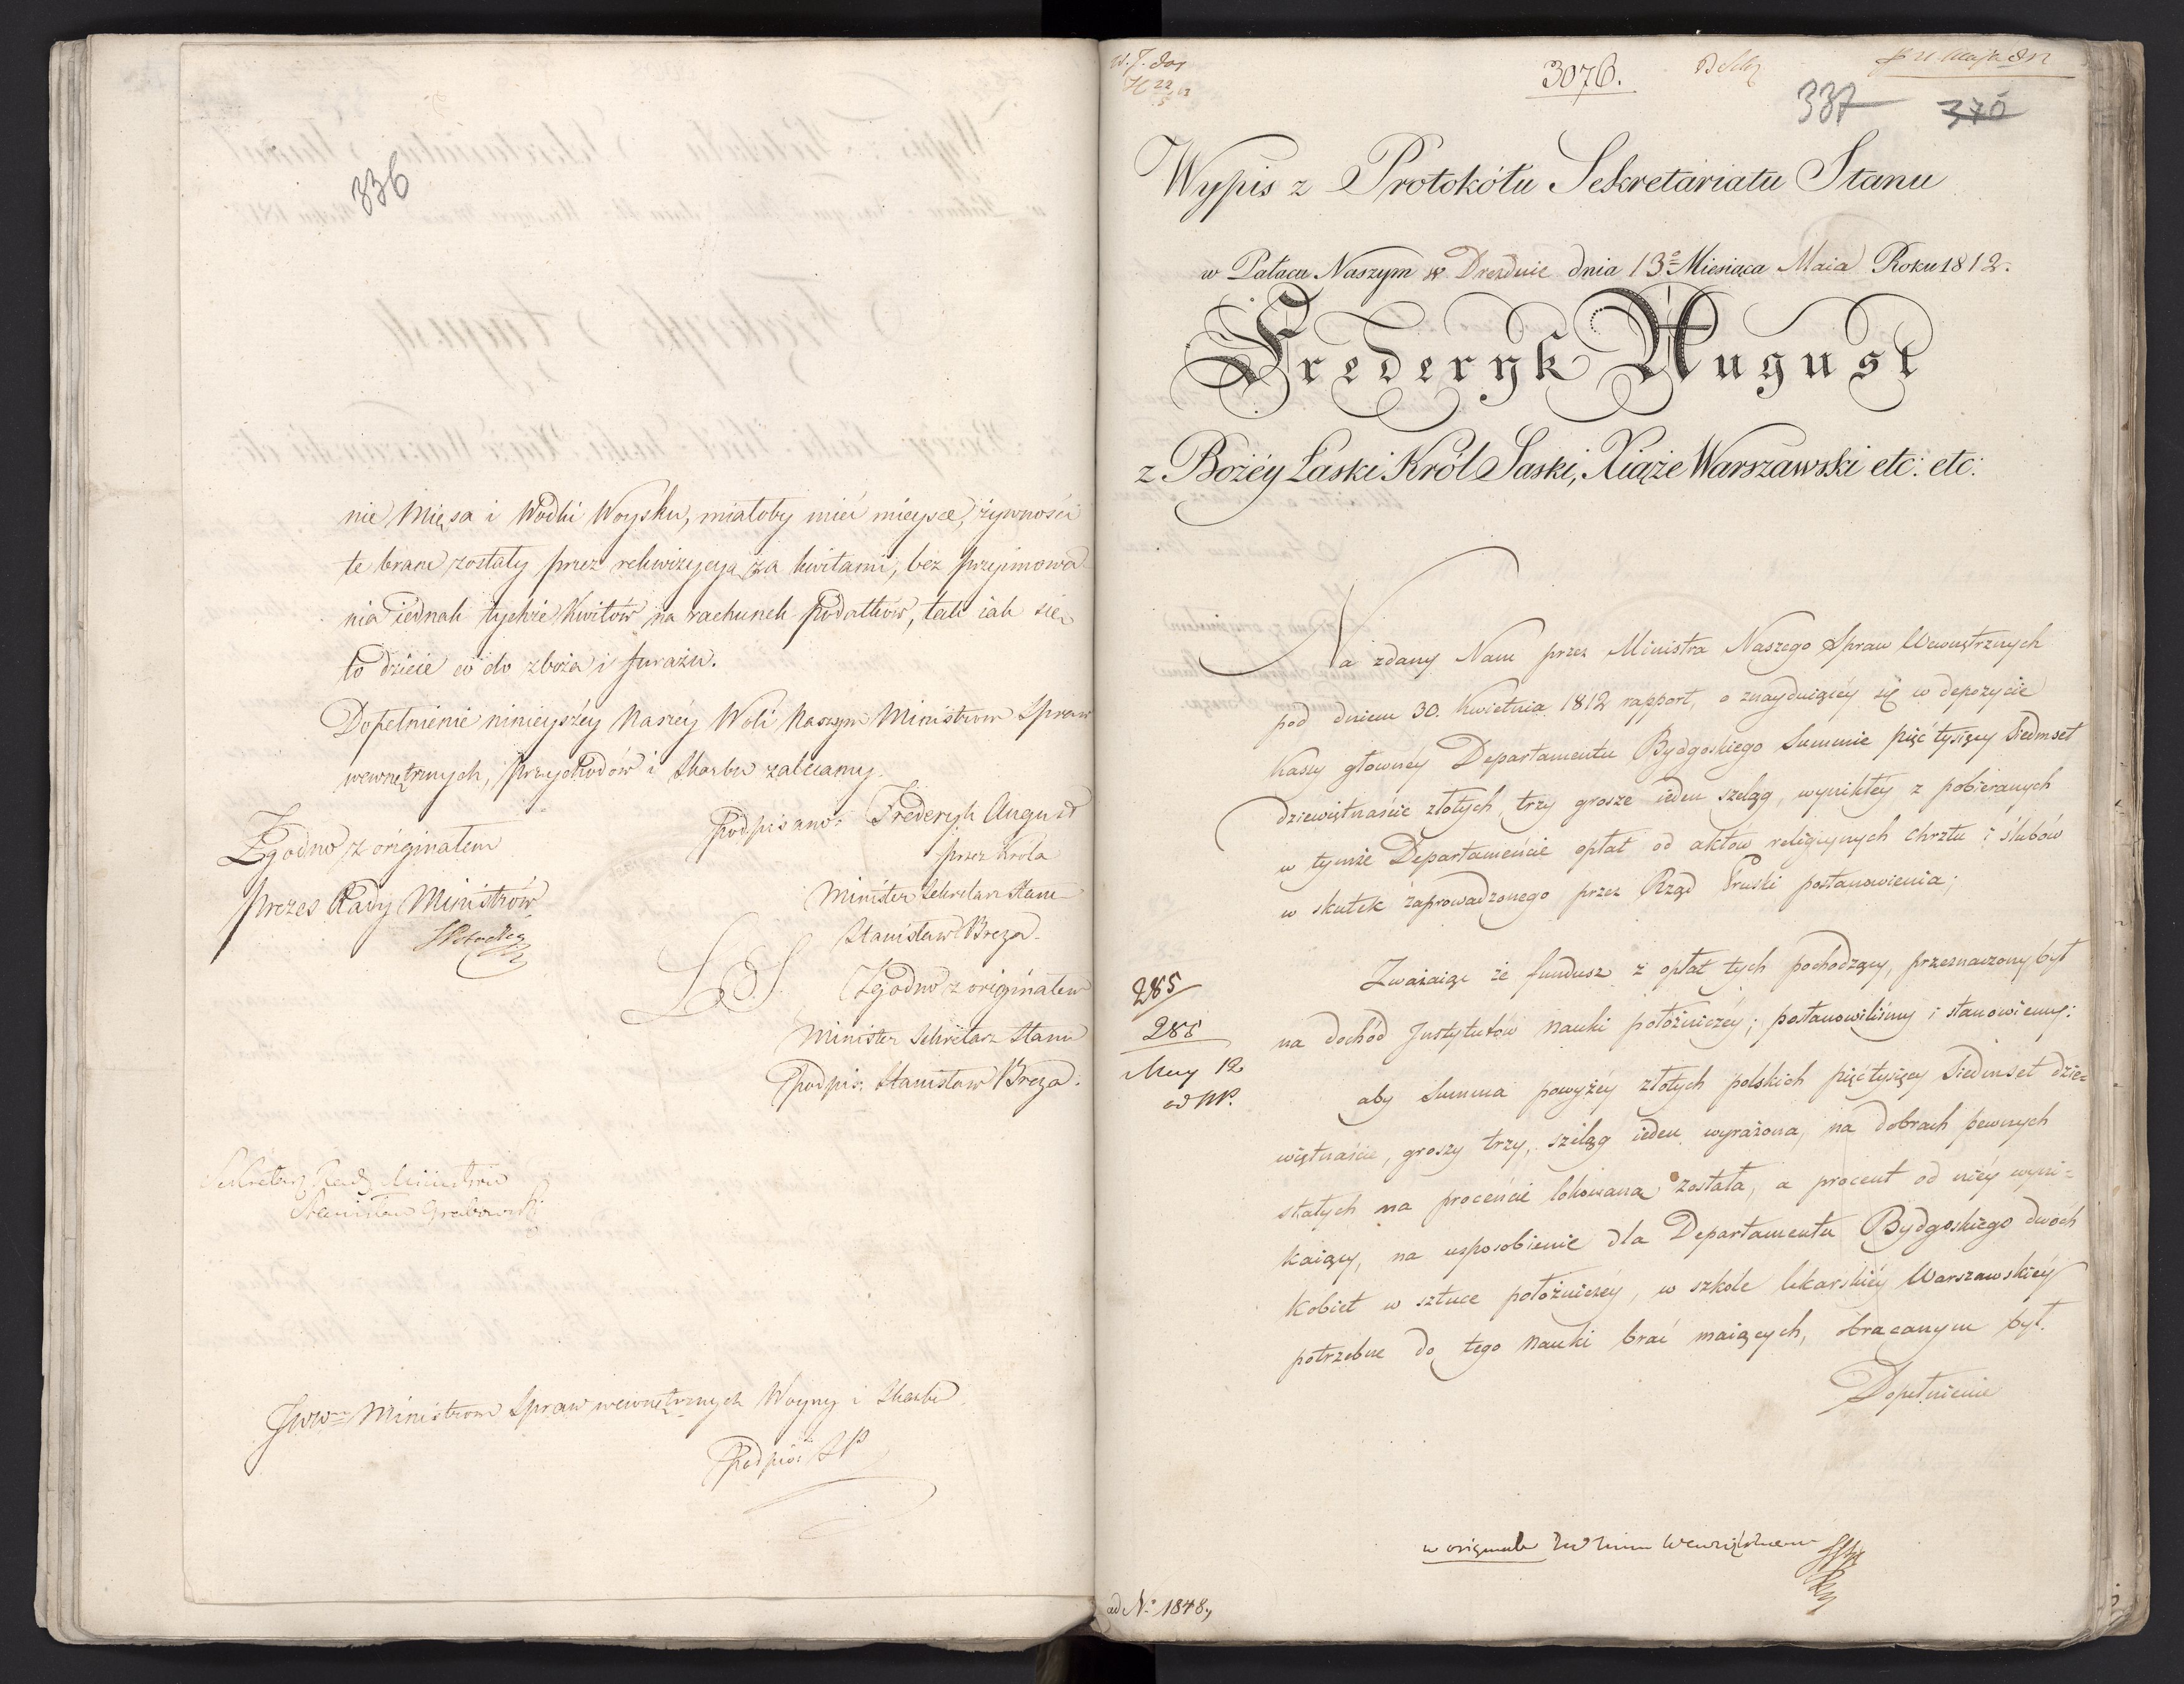 336
nie Mięsa i Wodki Woysku, miałoby mieć mieysce, żywności
te brane zostały przez rekwizycyą za kwitami, bez przyimowa-
nia iednak tychże Kwitów na rachunek podatków, tak iak się
to dzieie co do zboża i furażu.
Dopełnienie ninieyszéy Naszéy Woli Naszym Ministrom Spraw
wewnętrznych, Przychodów i Skarbu zalecamy.
Podpisano: Frederyk August
przez Króla
Minister Sekretarz Stanu
Stanisław Breza.
Zgodno z originałem
Prezes Rady Ministrów
L. S.
Zgodno z originałem
Minister Sekretarz Stanu
Podpis: Stanisław Breza.
Sekretarz Rady Ministrów
Stanisław Grabowski
JWW Ministrom Spraw wewnętrznych Woyny i Skarbu
Podpis:
3076.
337
370
Wypis z Protokółu Sekretariatu Stanu
w Pałacu Naszym w Dreźnie dnia 13º Miesiąca Maia Roku 1812.
Frederyk August
z Bożéy Łaski Król Saski, Xiąże Warszawski etc: etc:
Na zdany Nam przez Ministra Naszego Spraw Wewnętrznych
pod dniem 30. Kwietnia 1812 rapport, o znayduiącéy się w depozycie
kassy głownéy Departamentu Bydgoskiego Summie pięć tysięcy siedmset
dziewiętnaście złotych, trzy grosze ieden szeląg, wynikłéy z pobieranych
w tymże Departamencie opłat od aktow religiynych chrztu i ślubów
w skutek zaprowadzonego przez Rząd Pruski postanowienia;
Zważaiąc że fundusz z opłat tych pochodzący, przeznaczony był
na dochód Instytutów nauki położniczéy; postanowiliśmy i stanowiemy:
aby Summa powyżéy złotych polskich pięć tysięcy siedmset dzie=
więtnaście, groszy trzy, szeląg ieden wyrażona, na dobrach pewnych
stałych na procencie lokowana została, a procent od niéy wyni=
kaiący, na usposobienie dla Departamentu Bydgoskiego dwóch
kobiet w sztuce położniczéy, w szkole lekarskiéy Warszawskiéy
potrzebne do tego nauki brać maiących, obracanym był.
Dopełnienie
285
288
May 12
w originale
ad Nº 1848.